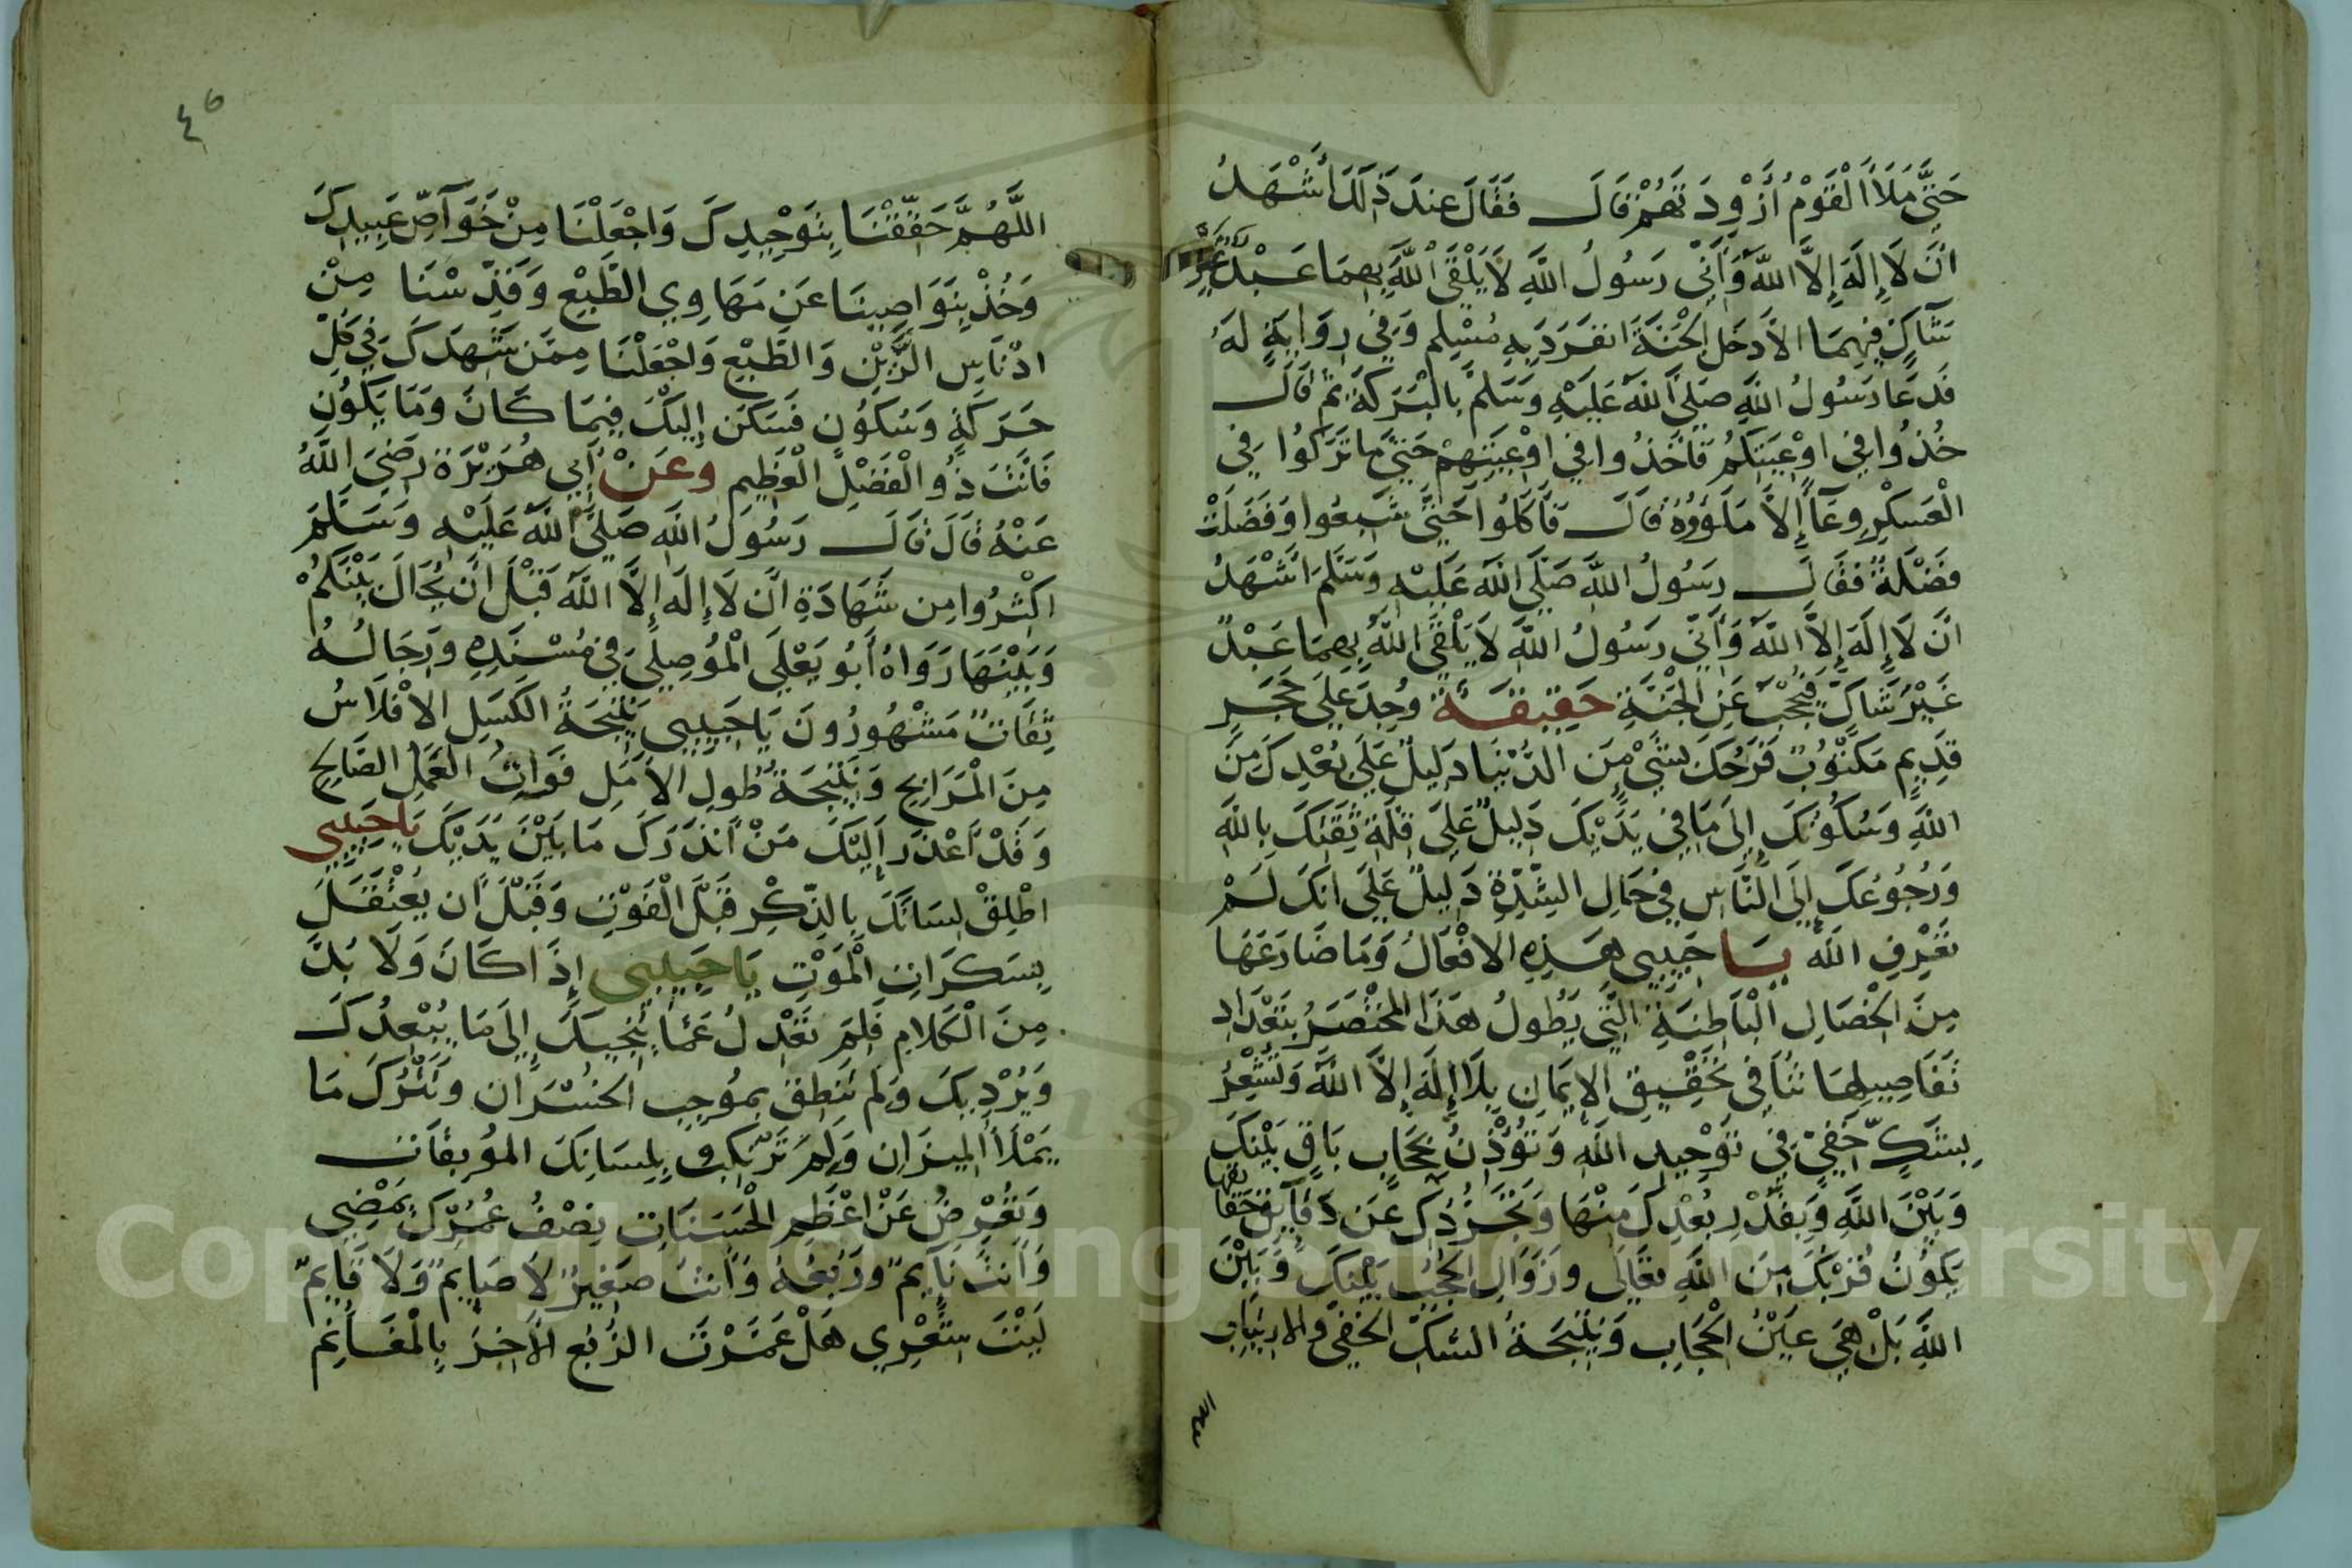 حَتَّى مَلَأَ الْقَوْمُ أَزْوِدَتَهُمْ قَالَ فَقَالَ عِنْدَ ذَلِكَ أَشْهَدُ
انْ لَا إِلَهَ إِلَّا اللَّهُ وَأَنِّي رَسُولُ اللَّهِ لَا يَلْقَى اللَّهَ بِهِمَا عَبْدٌ غَيْرُ
شَآكٍّ فِيهِمَا الاَّ دَخَلَ الْجَنَّةَ انْفَرَدَ بِهِ مُسْلِم وَفِي رِوَايَةٍ لَهُ
فَدَعَا رَسُولُ اللَّهِ صَلَّى اللَّهُ عَلَيْهِ وَسَلَّمَ بِالْبَرَكَةِ ثُمَّ قَالَ
خُذُوا فِي اوْعِيَتِكُمْ فَاخَذُوا فِي اوْعِيَتِهِمْ حَتَّى مَا تَرَكُوا فِي
الْعَسْكَرِ وِعَآءً إِلاَّ مَلَؤُوهُ قَالَ فَأَكَلُوا حَتَّى شَبِعُوا وَفَضَلَتْ
فَضْلَةٌ فَقَالَ رَسُولُ اللَّهِ صَلَّى اللَّهُ عَلَيْهِ وَسَلَّمَ اشْهَدُ
انْ لَا إِلَهَ إِلاَّ اللَّهُ وَأَنِّي رَسُولُ اللَّهِ لَا يَلْقَى اللَّهَ بِهِمَا عَبْدٌ
غَيْرُ شَاكٍّ فَيُحْجَبَ عَنِ الْجَنَّةِ حَقِيقَة وُجِدَ عَلَى حَجَرٍ
قَدِيمٍ مَكْتُوبٌ فَرَحُكَ بِشَيْءٍ مِنَ الدُّنْيَا دَلِيلٌ عَلَى بُعْدِكَ مِنَ
اللَّهِ وَسُكُونُكَ إِلَى مَا فِي يَدَيْكَ دَلِيلٌ عَلَى قِلَّةِ ثِقَتِكَ بِاللَّهِ
وَرُجُوعُكَ إِلَى النَّاسِ فِي حَالِ الشِّدَّةِ دَلِيلٌ عَلَى انَّكَ لَمْ
تَعْرِفِ اللَّه يَا حَبِيبِي هَذِهِ الافْعَالُ وَمَا ضَارَعَهَا
مِنَ الْخِصَالِ الْبَاطِنَةِ الَّتِي يَطُولُ هَذَا الْمُخْتَصَرُ بِتَعْدَادِ
تَفَاصِيلِهَا تُنَافِي تَحْقِيقَ الإِيمَانِ بِلَا إِلَهَ إِلاَّ اللَّهُ وَتُشْعِرُ
بِشَكٍّ خَفِيٍّ فِي تَوْحِيدِ اللَّهِ وَتُؤْذِنُ بِحِجَابٍ بَاقٍ بَيْنَكَ
وَبَيْنَ اللَّهِ وَبِقَدْرِ بُعْدِكَ مِنْهَا وَتَجَرُّدِكَ عَنْ دَقَآيِقِ حَقَا
يقها
يَكُونُ قُرْبُكَ مِنَ اللَّهِ تَعَالَى وَزَوَالِ الْحُجُبِ بَيْنَكَ وَبَيْنَ
اللَّهِ بَلْ هِيَ عَيْنُ الْحِجَابِ وَنَتِيجَةُ الشَّكِّ الْخَفِيِّ وَالارْتِيَابِ
اللَّهُمَّ حَقِّقْنَا بِتَوْحِيدِكَ وَاجْعَلْنَا مِنْ خَوَآصِّ عَبِيدِكَ
وَخُذْ بِنَوَاصِينَا عَنْ مَهَاوِي الطَّبْعِ وَقَدِّسْنَا مِنْ
ادْنَاسِ الرَّيْنِ وَالطَّبْعِ وَاجْعَلْنَا مِمَّنْ شَهِدَكَ فِي كُلِّ
حَرَكَةٍ وَسُكُونٍ فَسَكَنَ إِلَيْكَ فِيمَا كَانَ وَمَا يَكُونُ
فَانْتَ ذُو الْفَضْلِ الْعَظِيمِ وعَنْ أَبِي هُرَيْرَةَ رَضِيَ اللَّهُ
عَنْهُ قَالَ قَالَ رَسُولُ اللَّهِ صَلَّى اللَّهُ عَلَيْهِ وَسَلَّمَ
اكْثِرُوا مِنْ شَهَادَةِ انْ لَا إِلَهَ إِلَّا اللَّهُ قَبْلَ انْ يُحَالَ بَيْنَكُمْ
وَبَيْنَهَا رَوَاهُ أَبُو يَعْلَى الْمُوصِلِي فِي مُسْنَدِهِ وَرِجَالُهُ
ثِقَاتٌ مَشْهُورُونَ يَا حَبِيبِي نَتِيجَةُ الكَسَلِ الافْلَاسُ
مِنَ الْمَرَابِحِ وَنَتِيجَةُ طُولِ الاَمَلِ فَوَاتُ الْعَمَلِ الصَّالِحِ
وَقَدْ أَعْذَرَ إِلَيْكَ مَنْ أَنْذَرَكَ مَا بَيْنَ يَدَيْكَ يَا حَبِيبِي
اطْلِقْ لِسَانَكَ بِالذِّكْرِ قَبْلَ الْفَوْتِ وَقَبْلَ أَنْ يُعْتَقَلَ
بِسَكَرَاتِ الْمَوْتِ يَا حَبِيبِي إِذَا كَانَ وَلَا بُدَّ
مِنَ الْكَلَامِ فَلِمَ تَعْدِلُ عَمَّا يُنْجِيكَ إِلَى مَا يُبْعِدُكَ
وَيُرْدِيكَ وَلِمَ تَنْطِقُ بِمُوجِبِ الخُسْرَانِ وَتَتْرُكَ مَا
يَمْلَأُ الْمِيزَانِ وَلِمَ تَرْتَكِبُ بِلِسَانِكَ الْمُوبِقَاتِ
وَتُعْرِضُ عَنْ اعْظَمِ الْحَسَنَاتِ نِصْفُ عُمُرِكَ يَمْضِي
وَأَنْتَ نَآيِمٌ وَرُبْعُهُ وَأَنْتَ صَغِيرٌ لَا صَايِمٌ وَلَا قَايِمٌ
لَيْتَ شِعْرِي هَلْ عَمَّرْتَ الرُّبْعَ الآخِرَ بِالْمَغَانِم